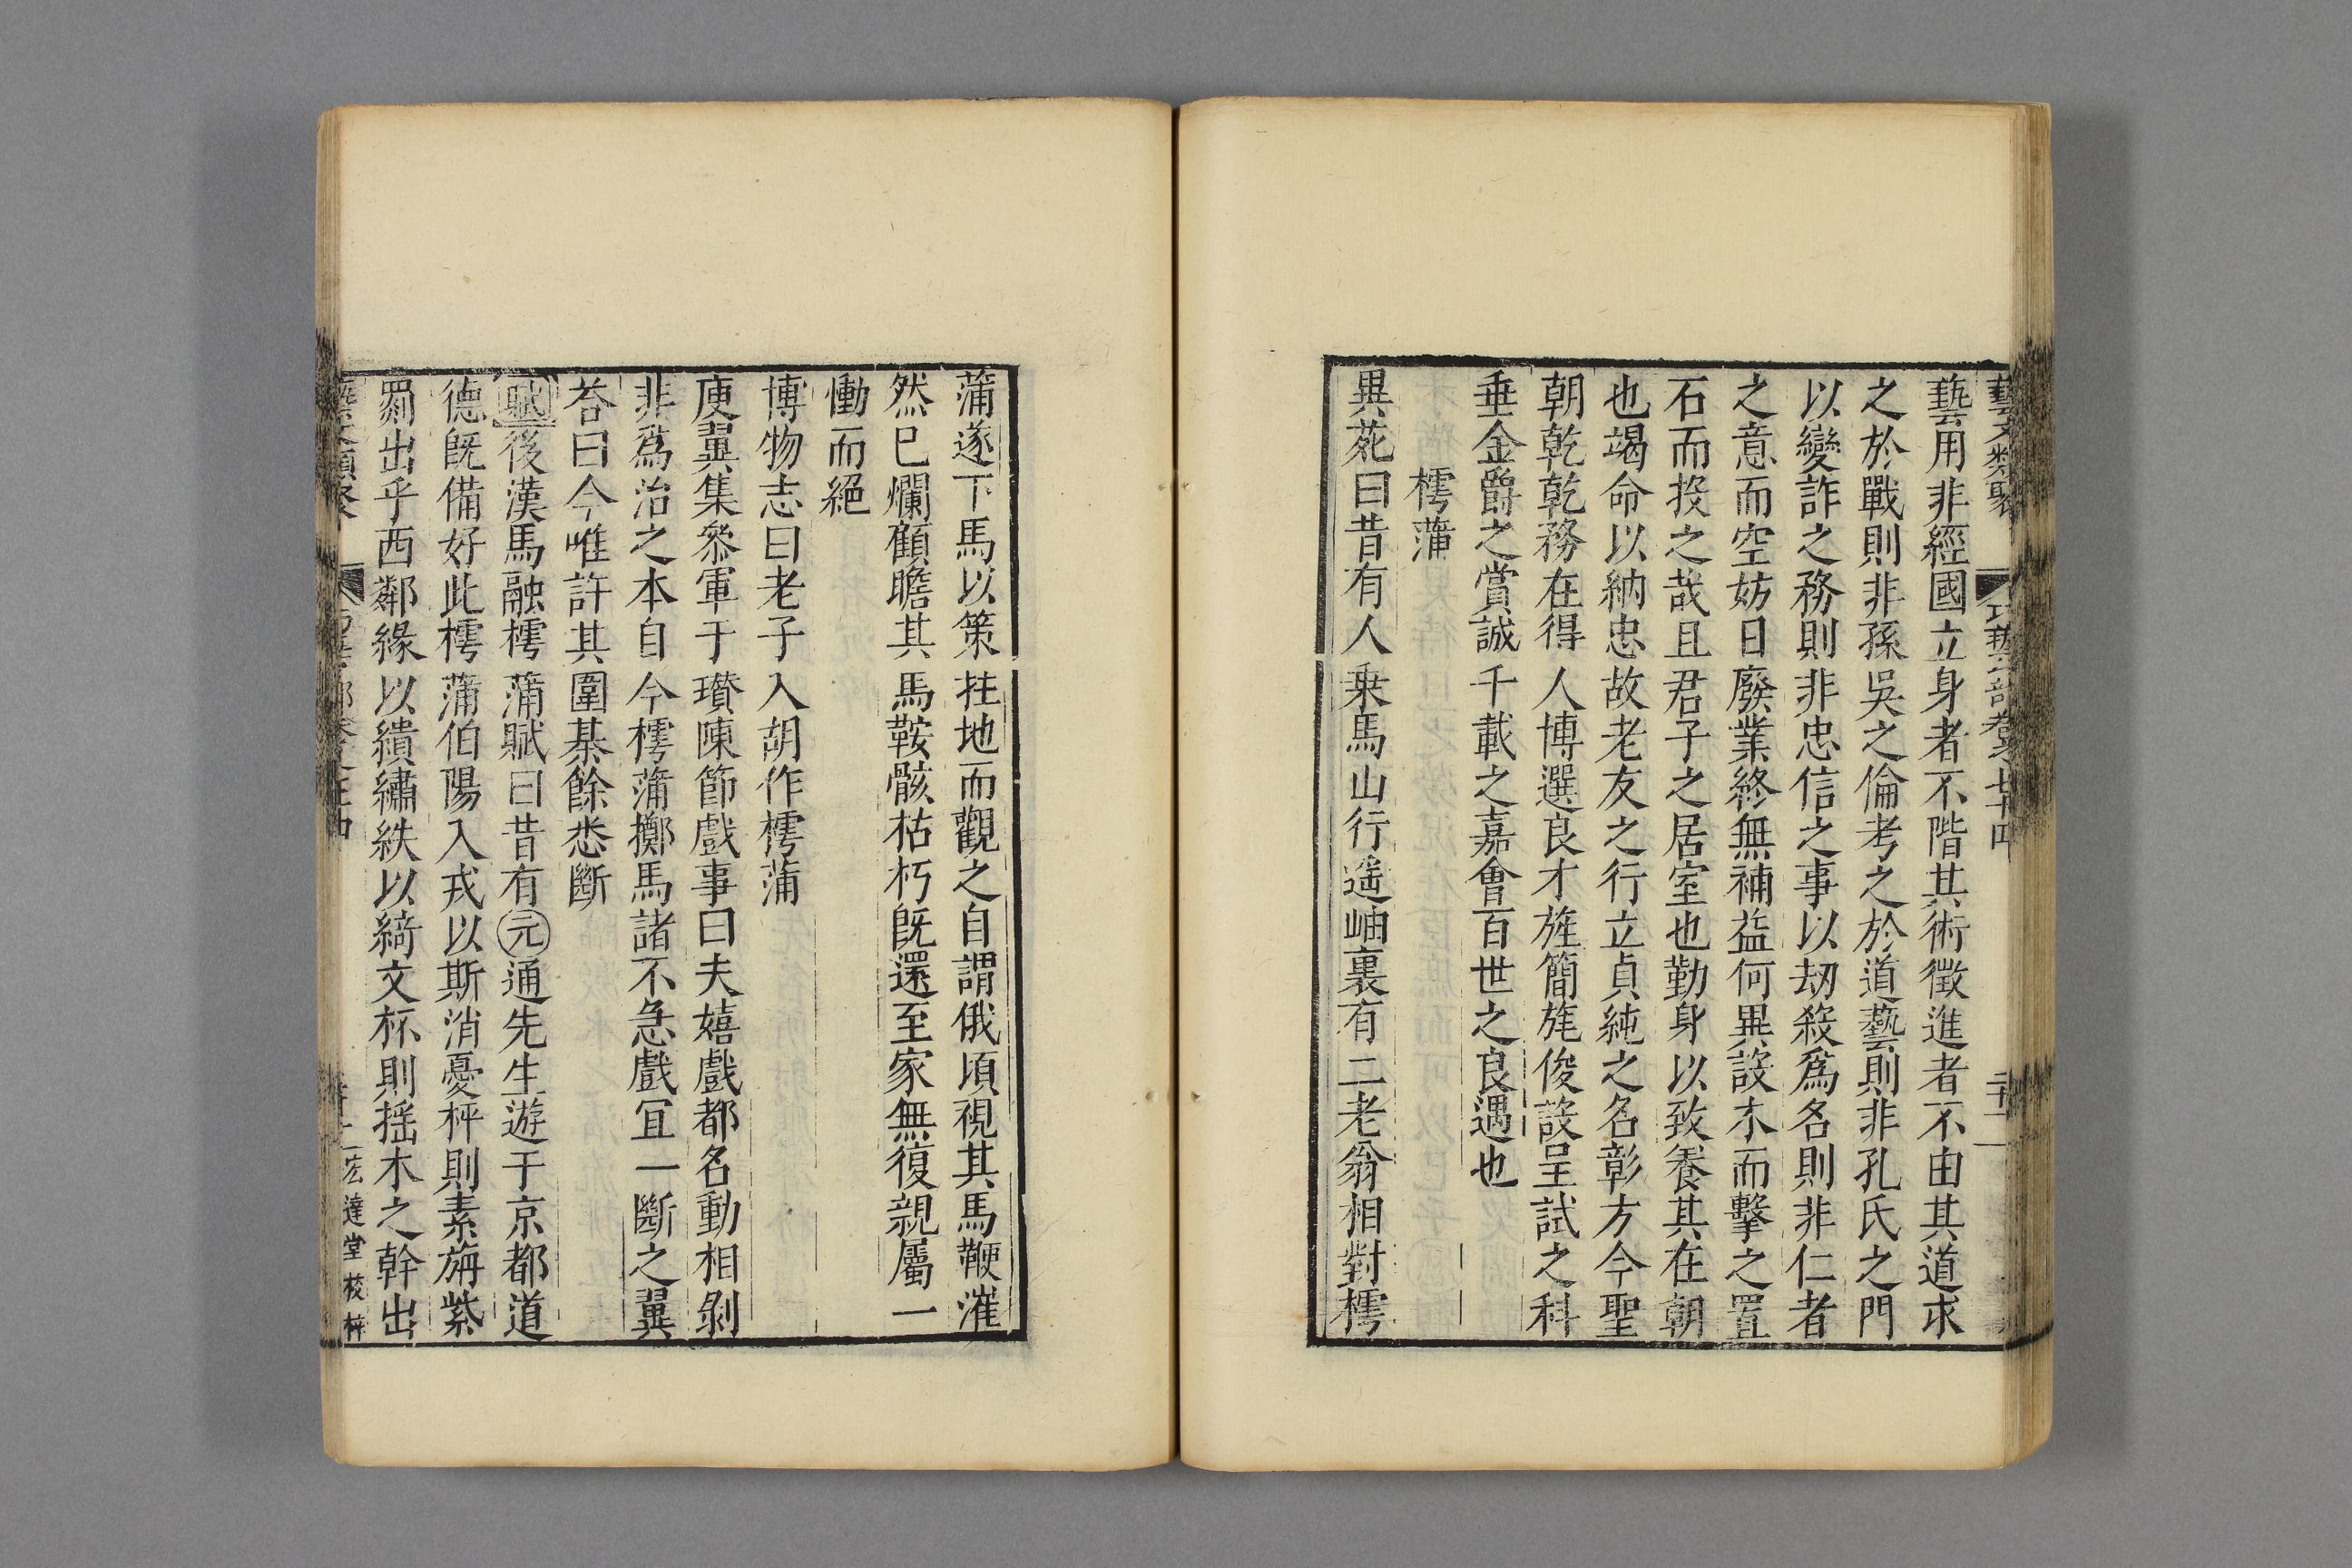 藝文類聚 巧藝部卷七十四 二十一
藝用非經國立身者不階其術徵進者不由其道求
之於戰則非孫吳之倫考之於道藝則非孔氏之門
以變詐之務則非忠信之事以刼殺爲名則非仁者
之意而空妨日廢業終無補益何異設木而擊之置
石而投之哉且君子之居室也勤身以致養其在朝
也竭命以納忠故老友之行立貞純之名彰方今聖
朝乾乾務在得人博選良才旌簡旄俊設呈試之科
垂金爵之賞誠千載之嘉會百世之良遇也
樗蒲
異苑曰昔有人乗馬山行遥岫裏有二老翁相對樗
蒲遂下馬以策拄地而觀之自謂俄頃視其馬鞭漼
然已爛顧瞻其馬鞍骸枯朽旣還至家無復親屬一
慟而絕
博物志曰老子入胡作樗蒲
庾翼集叅軍于瓚陳節戲事曰夫嬉戲都名動相剝
非爲治之本自今樗蒲擲馬諸不急戲冝一斷之翼
荅曰今唯許其圍棊餘悉斷
賦後漢馬融樗蒲賦曰昔有元通先生遊于京都道
德旣備好此樗蒲伯陽入戎以斯消憂枰則素旃紫
罽出乎西鄰緣以繢繡紩以綺文杯則搖木之幹出
藝文類聚 宏達堂校梓